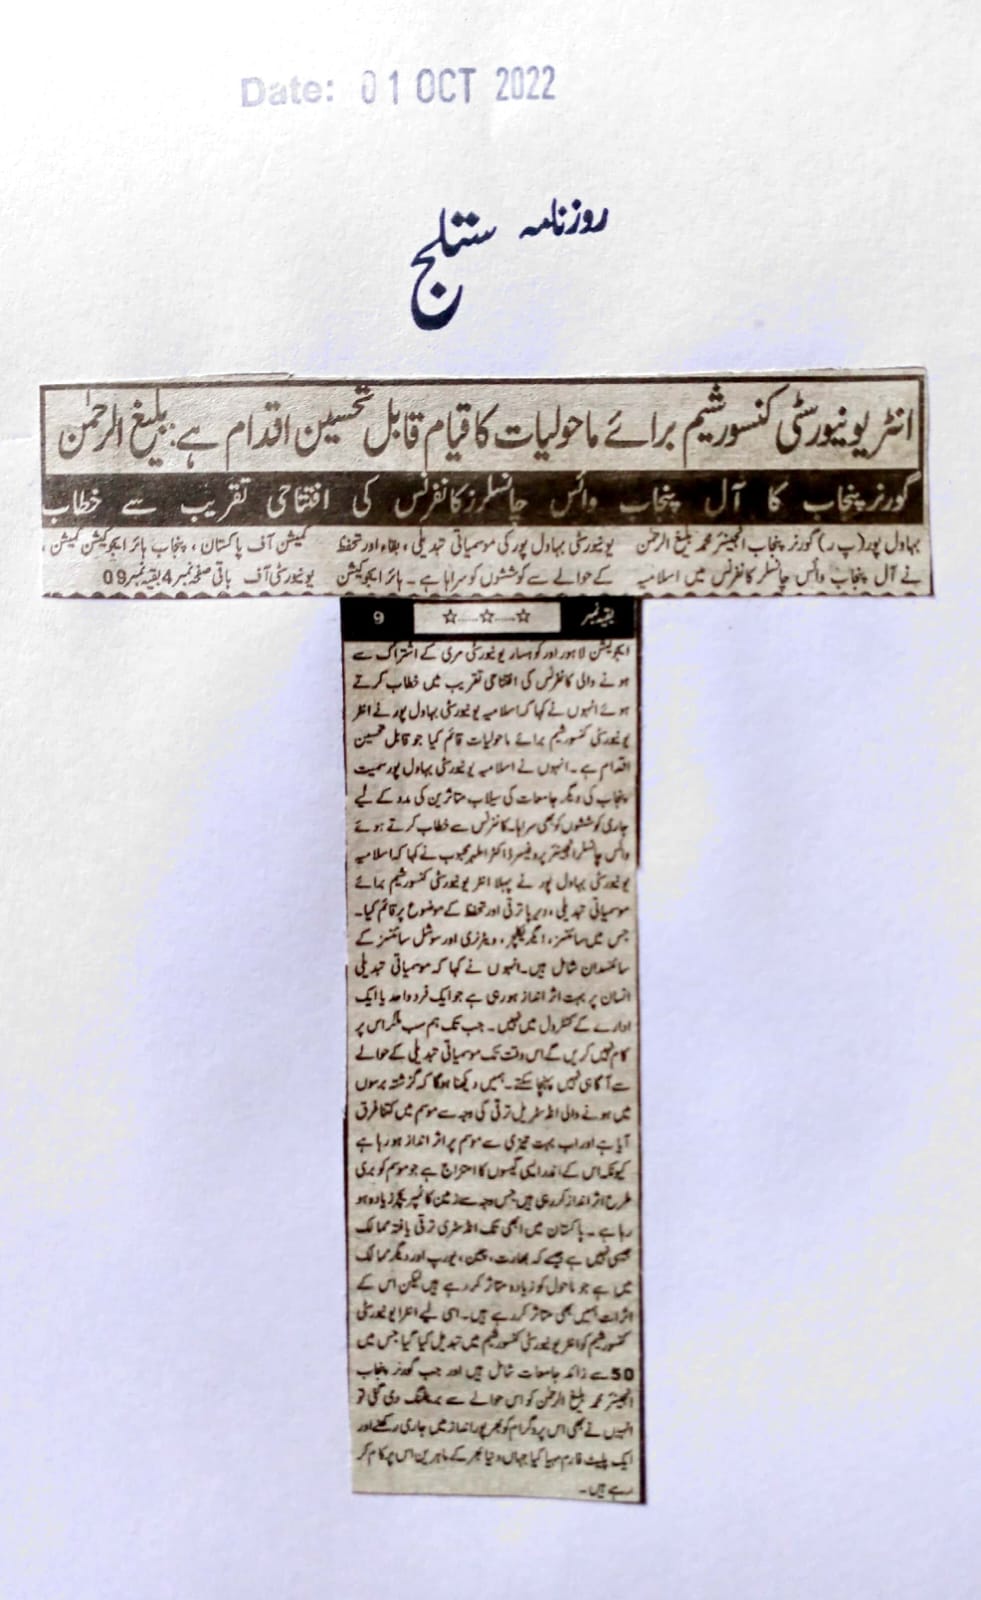 Date: 01 OCT 2022
روزنامہ ستلج
انٹر یونیورسٹی کنسورشیم برائے ماحولیات کا قیام قابل تحسین اقدام ہے: بلیغ الرحمٰن
گورنر پنجاب کا آل پنجاب وائس چانسلرز کانفرنس کی افتتاحی تقریب سے خطاب
بہاول پور (پ ر) گورنر پنجاب انجینئر محمد بلیغ الرحمن
نے آل پنجاب وائس چانسلر کانفرنس میں اسلامیہ
یونیورسٹی بہاول پور کی موسمیاتی تبدیلی، بقاء اور تحفظ
کے حوالے سے کوششوں کو سراہا ہے۔ ہائر ایجوکیشن
کمیشن آف پاکستان، پنجاب ہائر ایجوکیشن کمیشن،
یونیورسٹی آف باقی صفحہ نمبر 4 بقیہ نمبر 09
بقیہ نمبر 9
ایجوکیشن لاہور اور کوہسار یونیورسٹی مری کے اشتراک سے
ہونے والی کانفرنس کی افتتاحی تقریب میں خطاب کرتے
ہوئے انہوں نے کہا کہ اسلامیہ یونیورسٹی بہاول پور نے انٹر
یونیورسٹی کنسورشیم برائے ماحولیات قائم کیا جو قابل تحسین
اقدام ہے۔ انہوں نے اسلامیہ یونیورسٹی بہاول پور سمیت
پنجاب کی دیگر جامعات کی سیلاب متاثرین کی مدد کے لیے
جاری کوششوں کو بھی سراہا۔ کانفرنس سے خطاب کرتے ہوئے
وائس چانسلر انجینئر پروفیسر ڈاکٹر اطہر محبوب نے کہا کہ اسلامیہ
یونیورسٹی بہاول پور نے پہلا انٹر یونیورسٹی کنسورشیم برائے
موسمیاتی تبدیلی، دیرپا ترقی اور تحفظ کے موضوع پر قائم کیا۔
جس میں سائنسز، ایگریکلچر، ویٹرنری اور سوشل سائنسز کے
سائنسدان شامل ہیں۔ انہوں نے کہا کہ موسمیاتی تبدیلی
انسان پر بہت اثر انداز ہو رہی ہے جو ایک فرد واحد یا ایک
ادارے کے کنٹرول میں نہیں۔ جب تک ہم سب ملکر اس پر
کام نہیں کریں گے اس وقت تک موسمیاتی تبدیلی کے حوالے
سے آگاہی نہیں پہنچا سکتے۔ ہمیں دیکھنا ہوگا کہ گزشتہ برسوں
میں ہونے والی انڈسٹریل ترقی کی وجہ سے موسم میں کتنا فرق
آیا ہے اور اب بہت تیزی سے موسم پر اثر انداز ہو رہا ہے
کیونکہ اس کے اندر ایسی گیسوں کا امتزاج ہے جو موسم کو بری
طرح اثر انداز کر رہی ہیں جس وجہ سے زمین کا ٹمپریچر زیادہ ہو
رہا ہے۔ پاکستان میں ابھی تک انڈسٹری ترقی یافتہ ممالک
جیسی نہیں ہے جیسے کہ بھارت، چین، یورپ اور دیگر ممالک
میں ہے جو ماحول کو زیادہ متاثر کر رہے ہیں لیکن اس کے
اثرات ہمیں بھی متاثر کر رہے ہیں۔ اسی لیے انٹرا یونیورسٹی
کنسورشیم کو انٹر یونیورسٹی کنسورشیم میں تبدیل کیا گیا جس میں
50 سے زائد جامعات شامل ہیں اور جب گورنر پنجاب
انجینئر محمد بلیغ الرحمن کو اس حوالے سے بریفنگ دی گئی تو
انہیں نے بھی اس پروگرام کو بھرپور انداز میں جاری رکھنے اور
ایک پلیٹ فارم مہیا کیا جہاں دنیا بھر کے ماہرین اس پر کام کر
رہے ہیں۔